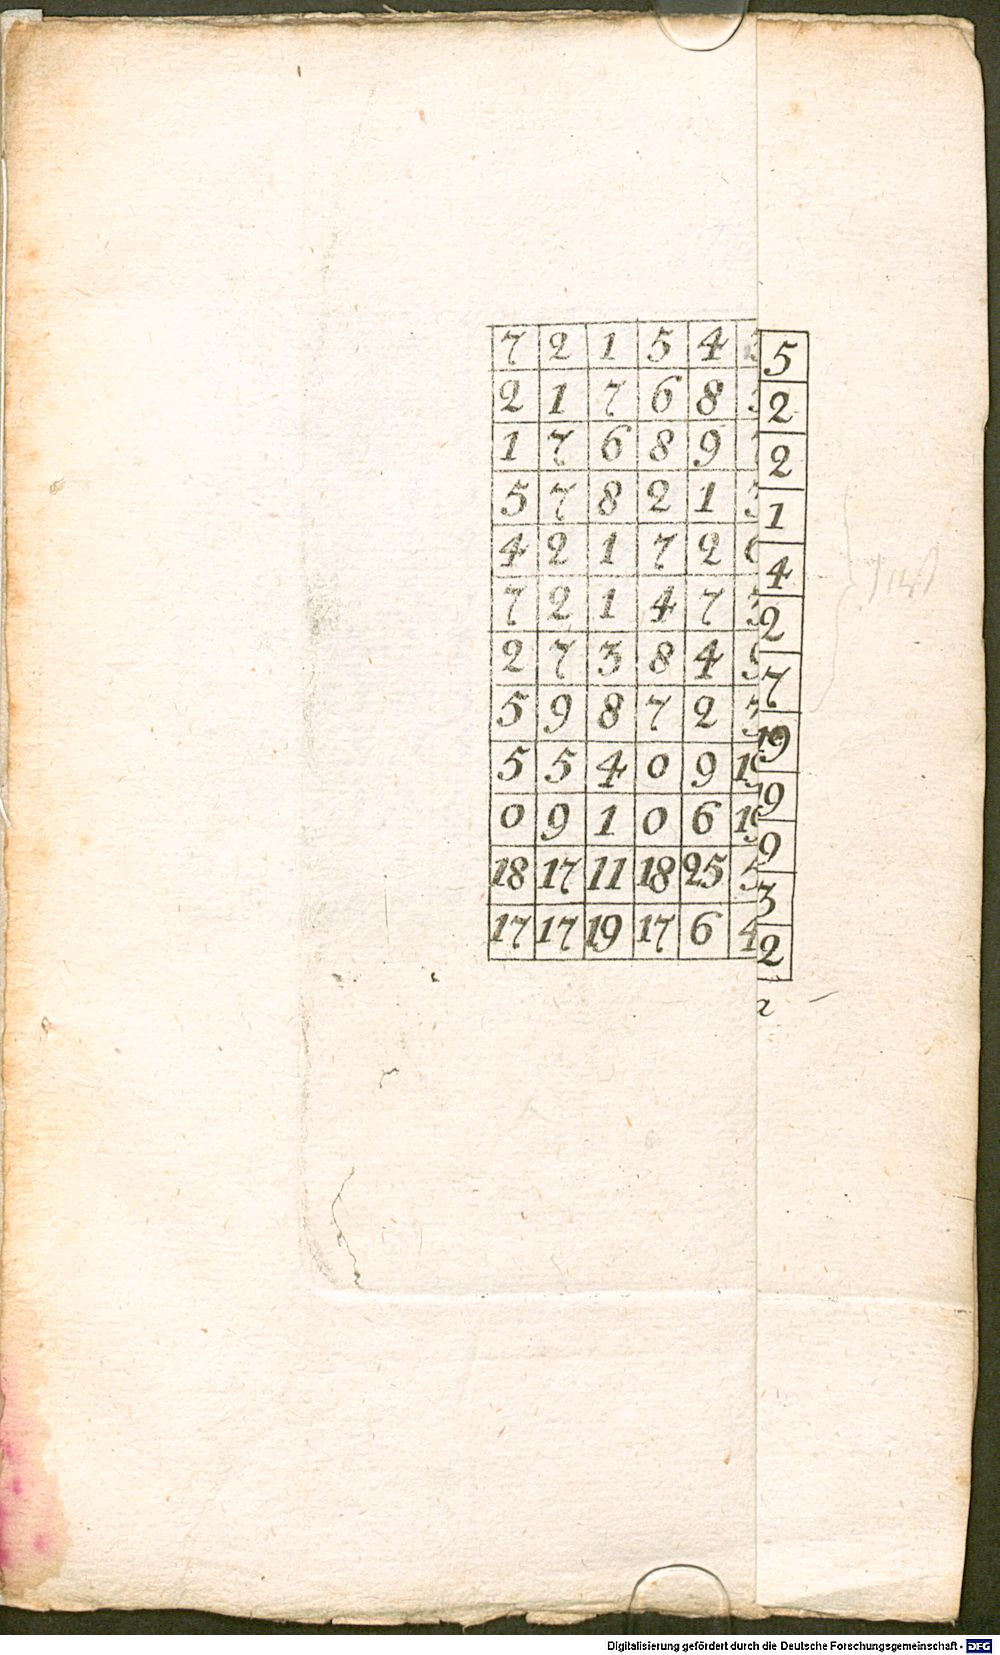 7 2 1 5 4 5
2 1 7 6 8 2
1 7 6 8 9 2
5 7 8 2 1 3 1
4 2 1 7 2 4
7 2 1 4 7 3 2
2 7 3 8 4 9 7
5 9 8 7 2 3 19
5 5 4 0 9 19 9
0 9 1 0 6 19 9
18 17 11 18 25 5 3
17 17 19 17 6 4 2
Digitalisierung gefördert durch die Deutsche Forschungsgemeinschaft - DFG